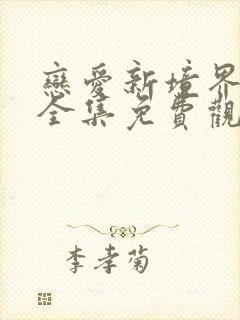 戀愛新境界
全集免費觀
李孝菊